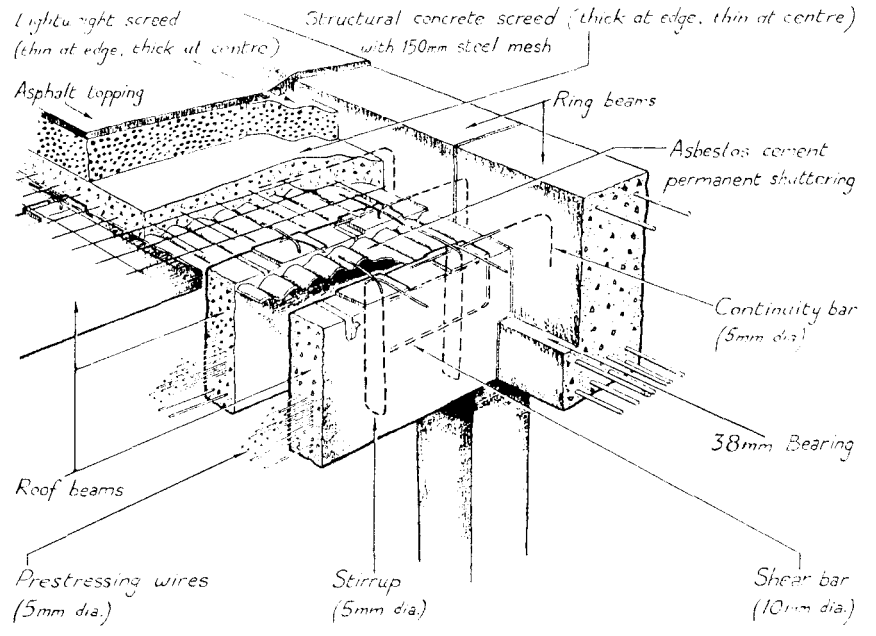 Lightweight screed
(thin at edge, thick at centre)
Structural concrete screed (thick at edge, thin at centre)
with 150mm steel mesh
Asphalt topping
Ring beams
Asbestos cement
permanent shuttering
Continuity bar
(5mm dia)
38mm Bearing
Roof beams
Prestressing wires
(5mm dia.)
Stirrup
(5mm dia.)
Shear bar
(10mm dia.)